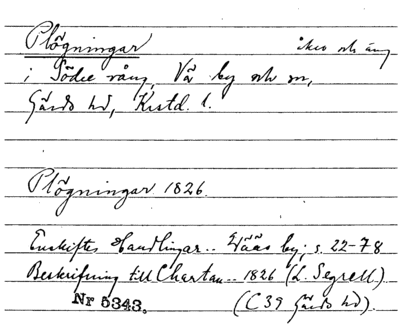 Plögningar åker och äng
i Södre vång, Vä by och sn,
Gärds hd, Krstd. l.
Plögningar 1826.
Enskiftes Handlingar.. Wääs by; s. 22-78
Beskrifning till Chartan.. 1826 (L. Segrell.)
Nr 5343. (C 39 Gärds hd).